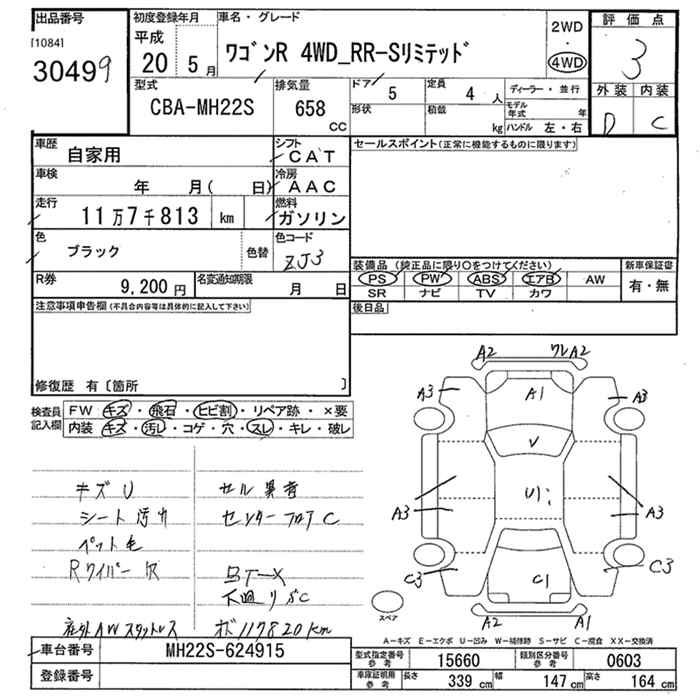 出品番号
[1084]
30499
初度登録年月
平成
20 5月
車名・グレード
ワゴンR 4WD_RR-Sリミテッド
2WD
・
4WD
評価点
3
外装 内装
D C
型式
CBA-MH22S
排気量
658
CC
ドア
5
定員
4 人
形状
積載
kg
ディーラー・並行
モデル年式 年
ハンドル 左・右
車歴
自家用
シフト
CAT
車検
年 月( 日)
冷房
AAC
走行
11万7千813 km
燃料
ガソリン
色
ブラック
色替
色コード
ZJ3
R券
9,200円
名変通知期限
月 日
セールスポイント(正常に機能するものに限ります)
装備品 (純正品に限り〇をつけてください)
PS PW ABS エアB AW
SR ナビ TV カワ
新車保証書
有・無
後日品
注意事項申告欄(不具合内容等は具体的に記入して下さい)
修復歴 有〔箇所 〕
検査員記入欄
FW キズ・飛石・ヒビ割・リペア跡・×要
内装 キズ・汚レ・コゲ・穴・スレ・キレ・破レ
キズU
シート汚レ
ペット毛
Rワイパー欠
セル異音
センターフロアC
下廻りSC
社外AWスタットレス
メーター117820km
A2 ワレA2
A3 A1 A3
V
U
A3 A3
C3 C1 C3
A2 A1
スペア
A-キズ E-エクボ U-凹み W-補修跡 S-サビ C-腐食 XX-交換済
車台番号
MH22S-624915
登録番号
型式指定番号
参考
15660
類別区分番号
参考
0603
車庫証明用
参考
長さ 339 cm 幅 147 cm 高さ 164 cm